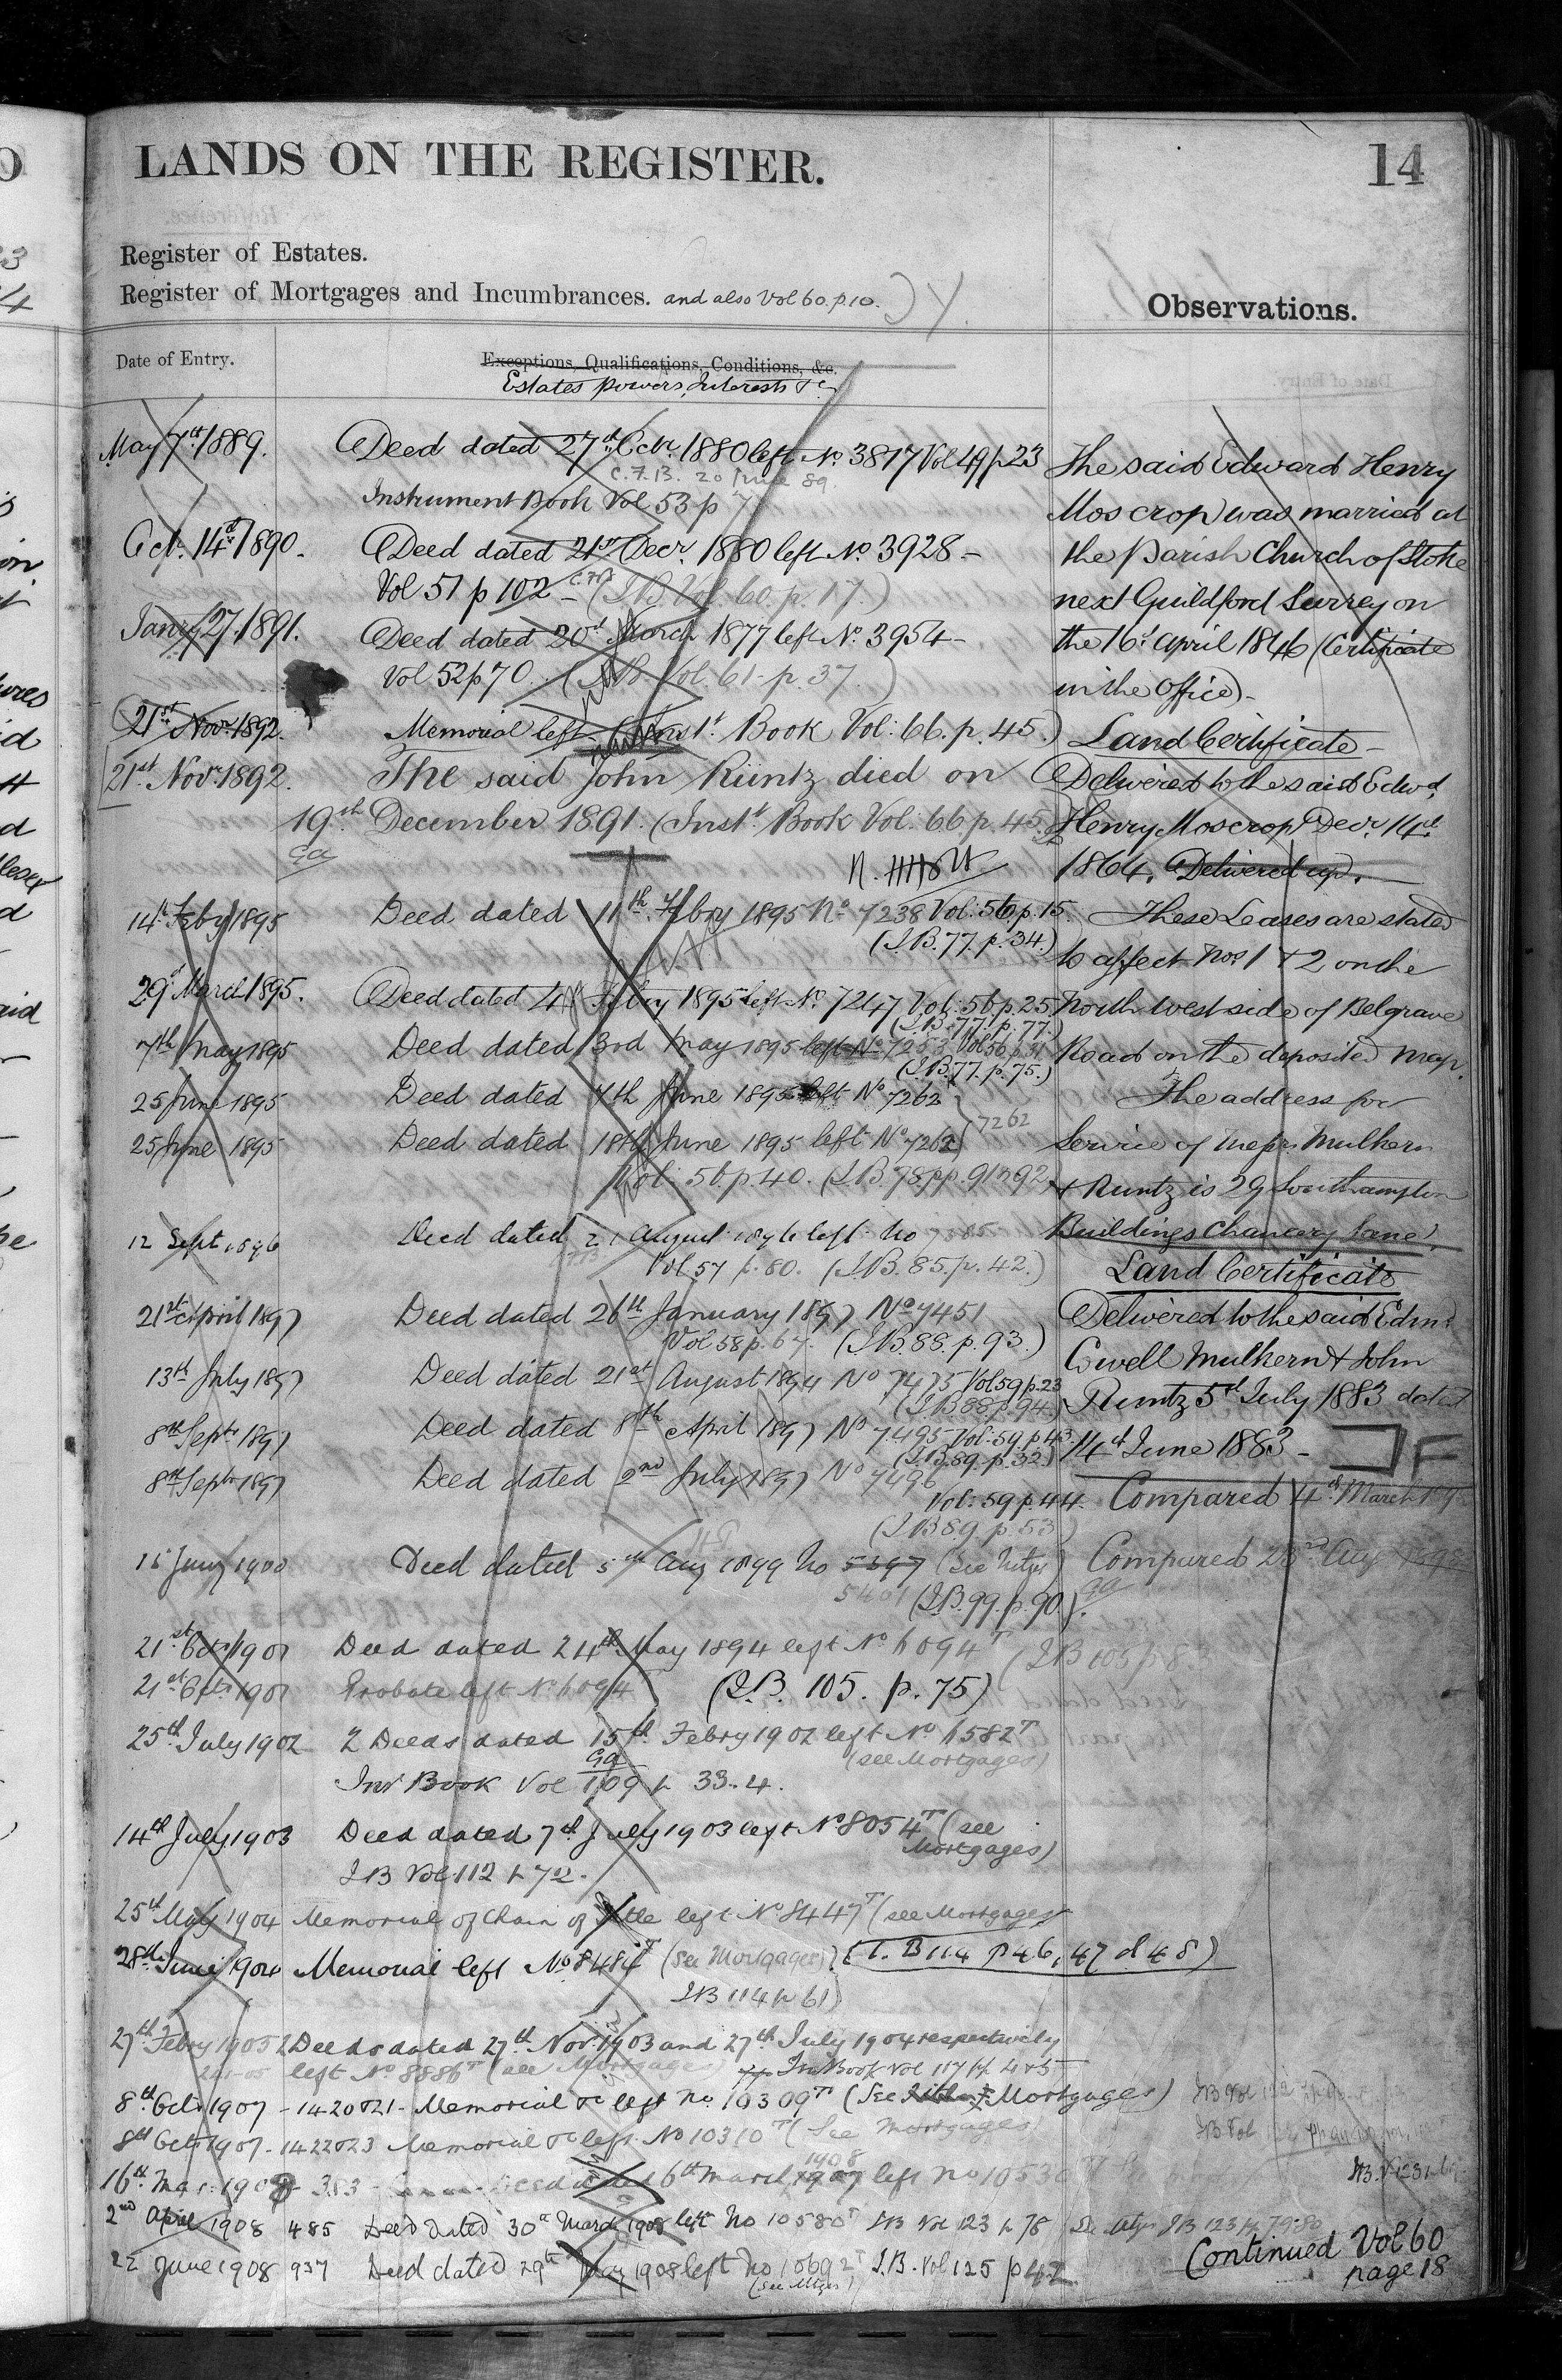 LANDS ON THE REGISTER.
14
Register of Estates.
Register of Mortgages and Incumbrances. and also Vol 60. p. 10.
Observations.
Date of Entry.
Exceptions, Qualifications, Conditions, &c.
Estates powers, Interests &c
May 7th 1889. Deed dated 27th Octr. 1880 left No. 3817 Vol 49 p 23
C.F.B. 20 June 89.
Instrument Book Vol 53 p 7
Oct. 14th 1890. Deed dated 21st Decr. 1880 left No. 3928 -
Vol 51 p 102 - (I.B. Vol. 60. p. 17.)
Jany 27. 1891. Deed dated 20th March 1877 left No. 3954 -
Vol 52 p 70. (I.B. Vol. 61 - p. 37)
21st Novr. 1892. Memorial left. (Inst. Book Vol: 66. p. 45.)
21st Novr. 1892. The said John Runtz died on
19th December 1891. (Inst. Book Vol. 66 p. 45.)
14th Feby 1895 Deed dated 11th Febry 1895 No 7238 Vol: 56 p. 15.
(I.B. 77. p. 34.)
29th March 1895. Deed dated 4th Febry 1895 left No. 7247 Vol: 56 p. 25
(I.B. 77. p. 77.)
7th May 1895 Deed dated 3rd May 1895 left No 7253 Vol 56 p 31
(I.B. 77. p. 75.)
25 June 1895 Deed dated 7th June 1895 left No 7262
25 June 1895 Deed dated 18th June 1895 left No 7262
7262
Vol: 56. p. 40. (I.B. 78. pp. 91 & 92
12 Sept 1896 Deed dated 21 August 1896 left No 7385
Vol 57 p. 80. (I.B. 85. p. 42.)
21st April 1897 Deed dated 26th January 1897 No 7451
Vol 58 p. 67. (I.B. 88. p. 93.)
13th July 1897 Deed dated 21st August 1894 No 7475 Vol 59 p. 23
(I.B. 88 p. 94.)
8th Septr 1897 Deed dated 8th April 1897 No 7495 Vol: 59. p 43
(I.B. 89. p. 52)
8th Septr 1897 Deed dated 2nd July 1897 No 7496
Vol: 59 p. 44.
(I.B. 89. p. 53)
15 Jany 1900 Deed dated 5th Aug 1899 No 5397 (See Mtges)
5401 (I.B. 99. p. 90.)
21st Octr 1901 Deed dated 24th May 1894 left No 6094T (I.B 105 p 83
21st Octr 1901 Probate left No 6094T (I.B. 105. p. 75)
25th July 1902 2 Deeds dated 15th Febry 1902 left No 6582T
(see Mortgages)
Inst Book Vol 109 p 33-4.
14th July 1903 Deed dated 7th July 1903 left No 8054T (see
Mortgages)
I B Vol 112 p 72.
25th May 1904 Memorial of Chain of Title left No 8447T (see Mortgages
28th June 1904 Memorial left No 8484T (See Mortgages) (I. B 114 p 46, 47 & 48)
I B 114 p 61)
27th Febry 1905 2 Deeds dated 27th Novr. 1903 and 27th July 1904 respectively
left No 8886T (see Mortgages) Inst Book Vol 117 pp 4 & 5
8th Octr 1907 - 1420 & 21 - Memorial &c left No. 10309T (See Mortgages)
8th Octr 1907 - 1422 & 23 Memorial &c left. No 10310T (See Mortgages)
16th Mar. 1908 - 383 - Deed dated 6th March 1908 left No 10530
2nd April 1908 485 Deed dated 30th March 1908 left No 10580T I B Vol 123 p 78 (See Mtges I B 123 p 79-80
22 June 1908 937 Deed dated 29th May 1908 left No 10692T I.B. Vol 125 p 42
(See Mtges)
The said Edward Henry
Moscrop was married at
the Parish Church of Stoke
next Guildford Surrey on
the 16th April 1846 (Certificate
in the Office) -
Land Certificate -
Delivered to the said Edwd.
Henry Moscrop Decr. 14th
1864. Delivered up.
These Leases are stated
to affect Nos 1 & 2 on the
North West side of Belgrave
Road on the deposited map.
The address for
Service of Messrs Mulkern
& Runtz is 29 Southampton
Buildings Chancery Lane.
Land Certificate
Delivered to the said Edmd
Cowell Mulkern & John
Runtz 5th July 1883 dated
14th June 1883 -
Compared 4th March
Compared 23rd Aug 1898
Continued Vol 60
page 18